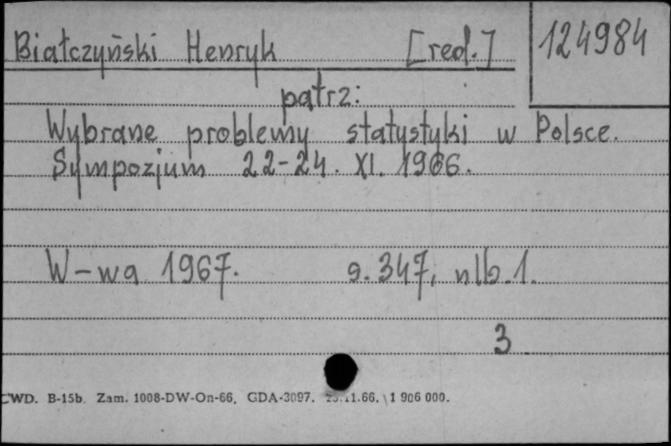 Białczyński Henryk [red.] 124984
patrz:
Wybrane problemy statystyki w Polsce.
Sympozjum 22-24. XI. 1966.
W-wa 1967. s. 347, nlb. 1.
3
CWD. B-15b. Zam. 1008-DW-On-66. GDA-3097. 11.66. 1 906 000.